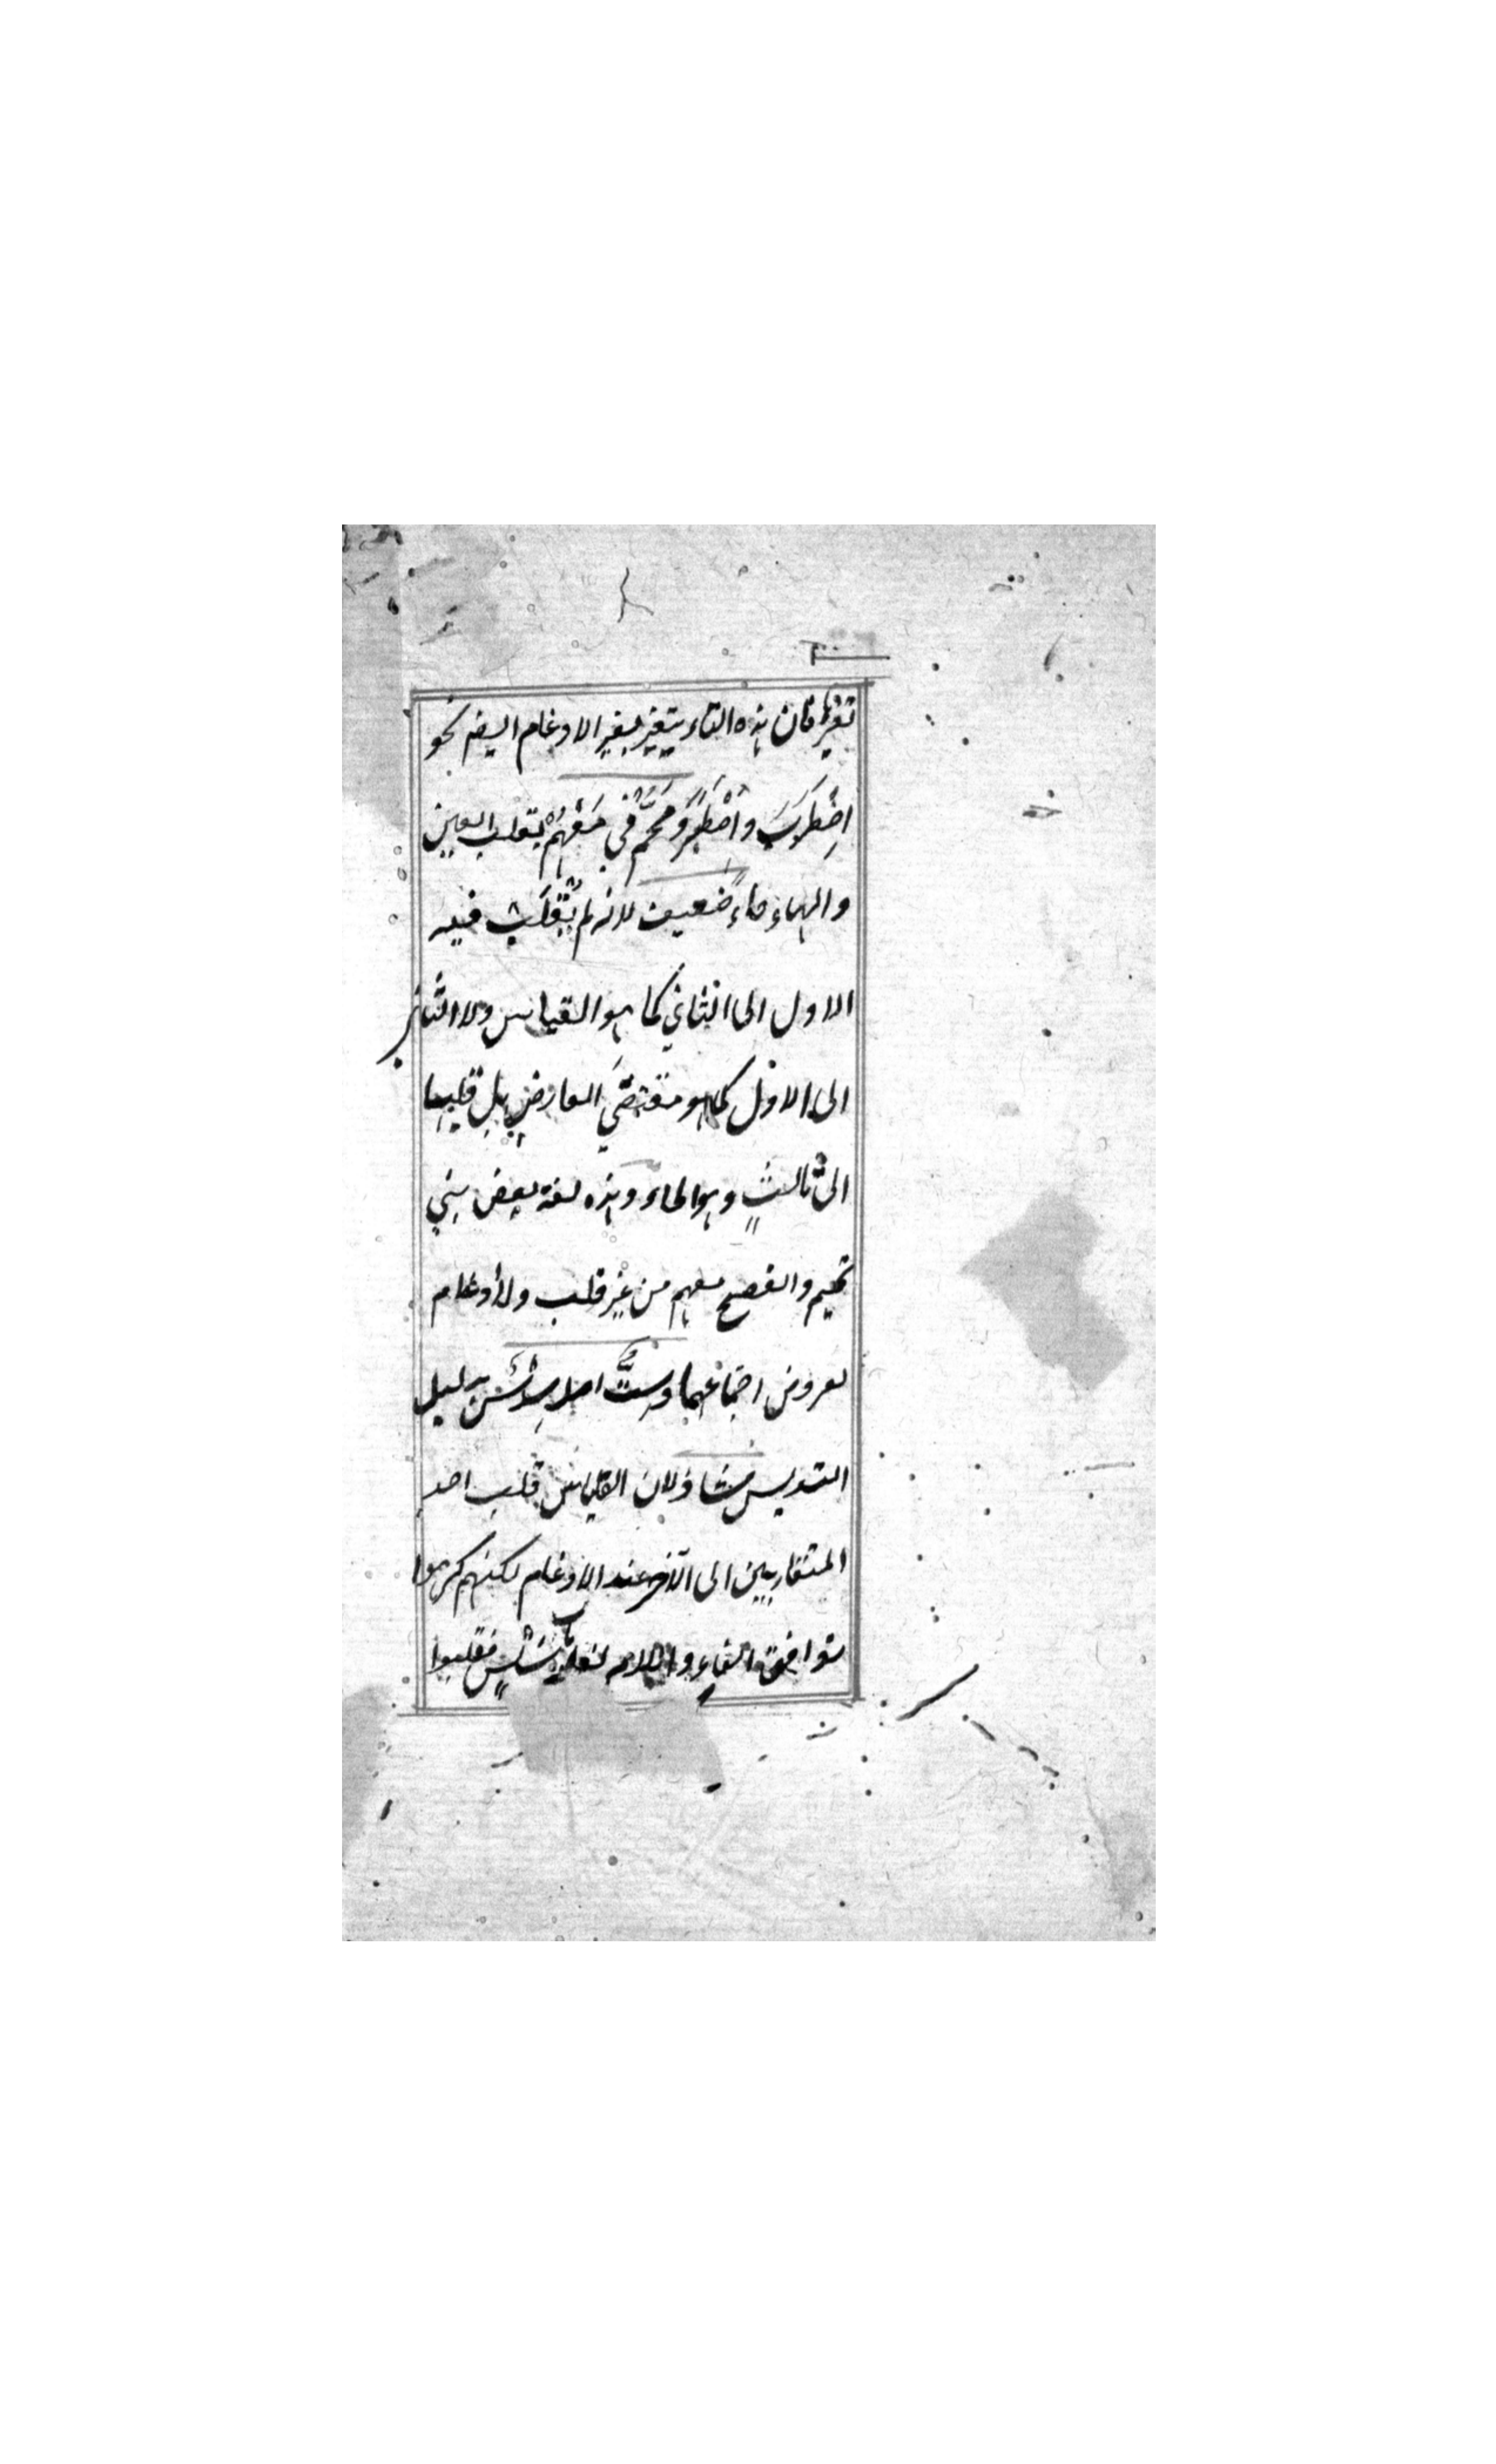 تغيرها فان هذه التاء يتغير لغير الادغام ايضا نحو
اِضْطَرَبَ واصْطَبَرَ ومَحَّمْ في مَعَهُمْ بقلب العين
والهاء حاءً ضعيف لانه لم يُقْلَبْ فيه
الاول الى الثاني كما هو القياس ولا الثاني
الى الاول كما هو مقتضَى العارض بل قلبها
الى ثالثٍ وهو الحاء وهذه لغة بعض بني
تميم والفصيح معهم من غير قلب ولا ادغام
لعروض اجتماعهما وسِتٌّ اصله سِدْسٌ بدليل
التسديس شاذ لان القياس قلب احد
المتقاربين الى الآخر عند الادغام لكنهم كرهوا
توافق الفاء واللام فقلبوا